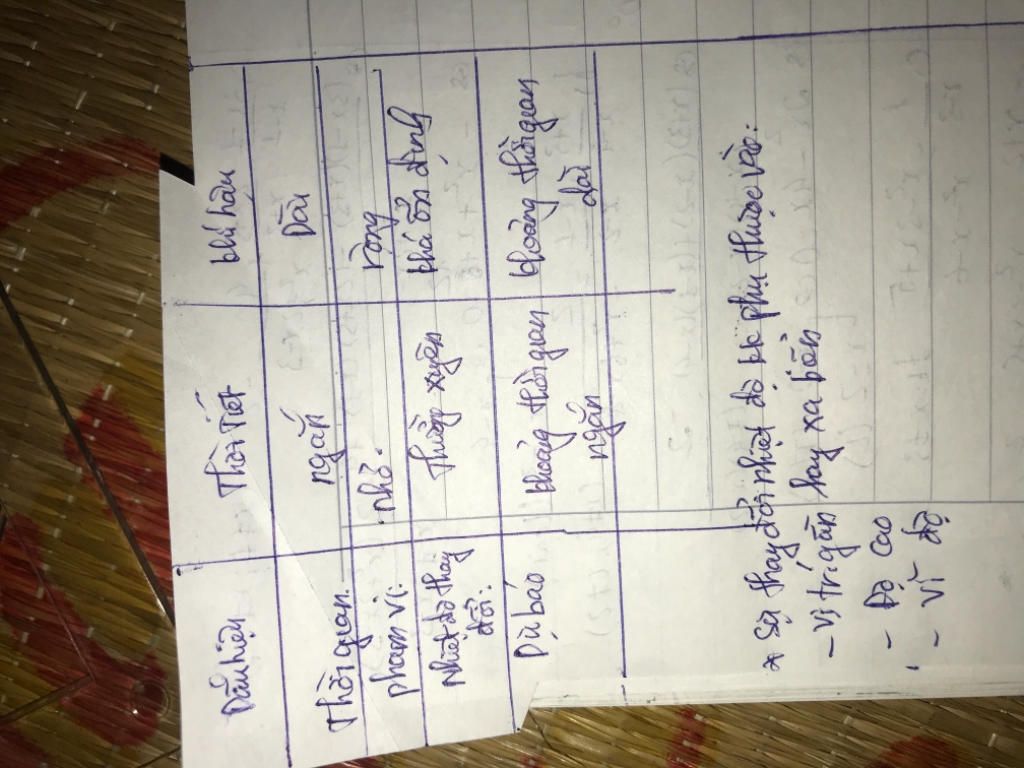 Dấu hiệu Thời Tiết khí hậu
Thời gian. ngắn Dài
phạm vi: nhỏ. rộng
Nhiệt độ thay Thường xuyên khá ổn định
đổi:
Dự báo khoảng thời gian khoảng thời gian
ngắn dài
* Sự thay đổi nhiệt độ kk phụ thuộc vào:
- Vị trí gần hay xa biển
- Độ cao
- Vĩ độ